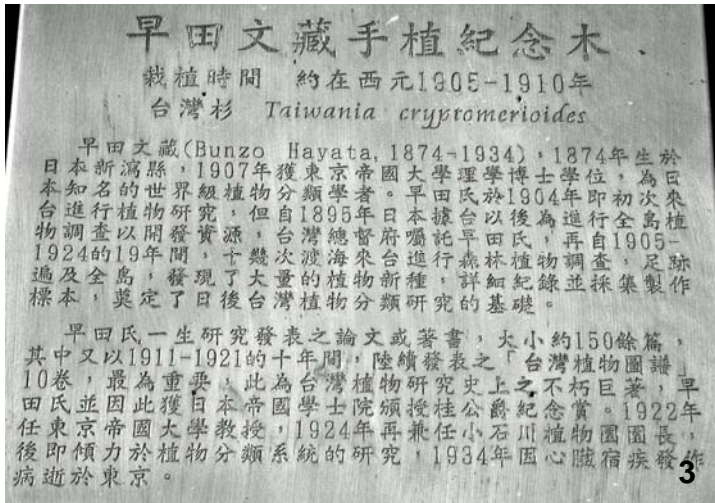 早田文藏手植紀念木
栽植時間 約在西元1905-1910年
台灣杉 Taiwania cryptomerioides
早田文藏(Bunzo Hayata,1874-1934),1874年生於
日本新瀉縣,1907年獲東京帝國大學理學博士學位,為日
本知名的世界級植物分類學者。早田民於1904年即初次來
台進行植物研究,但自1895年日本據台以後為進行全島植
物調查以開發資源,台灣總督府囑託早田氏,再自1905-
1924的19年間,十幾次渡海來台進行森林植物調查,足跡
遍及全島,發現了大量的植物新種,詳細紀錄並採集製作
標本,奠定了日後台灣植物分類研究的基礎。
早田氏一生研究發表之論文或著書,大小約150餘篇,
其中又以1911-1921的十年間,陸續發表之「台灣植物圖譜」
10卷,最為重要,此為台灣植物研究史上之不朽巨著,早
田氏並因此獲日本帝國學士院頒授桂公爵紀念賞。1922年
任東京帝國大學教授,1924年再兼任小石川植物園園長,
後即傾力於植物分類系統的研究,1934年因心臟宿疾發作
病逝於東京。
3